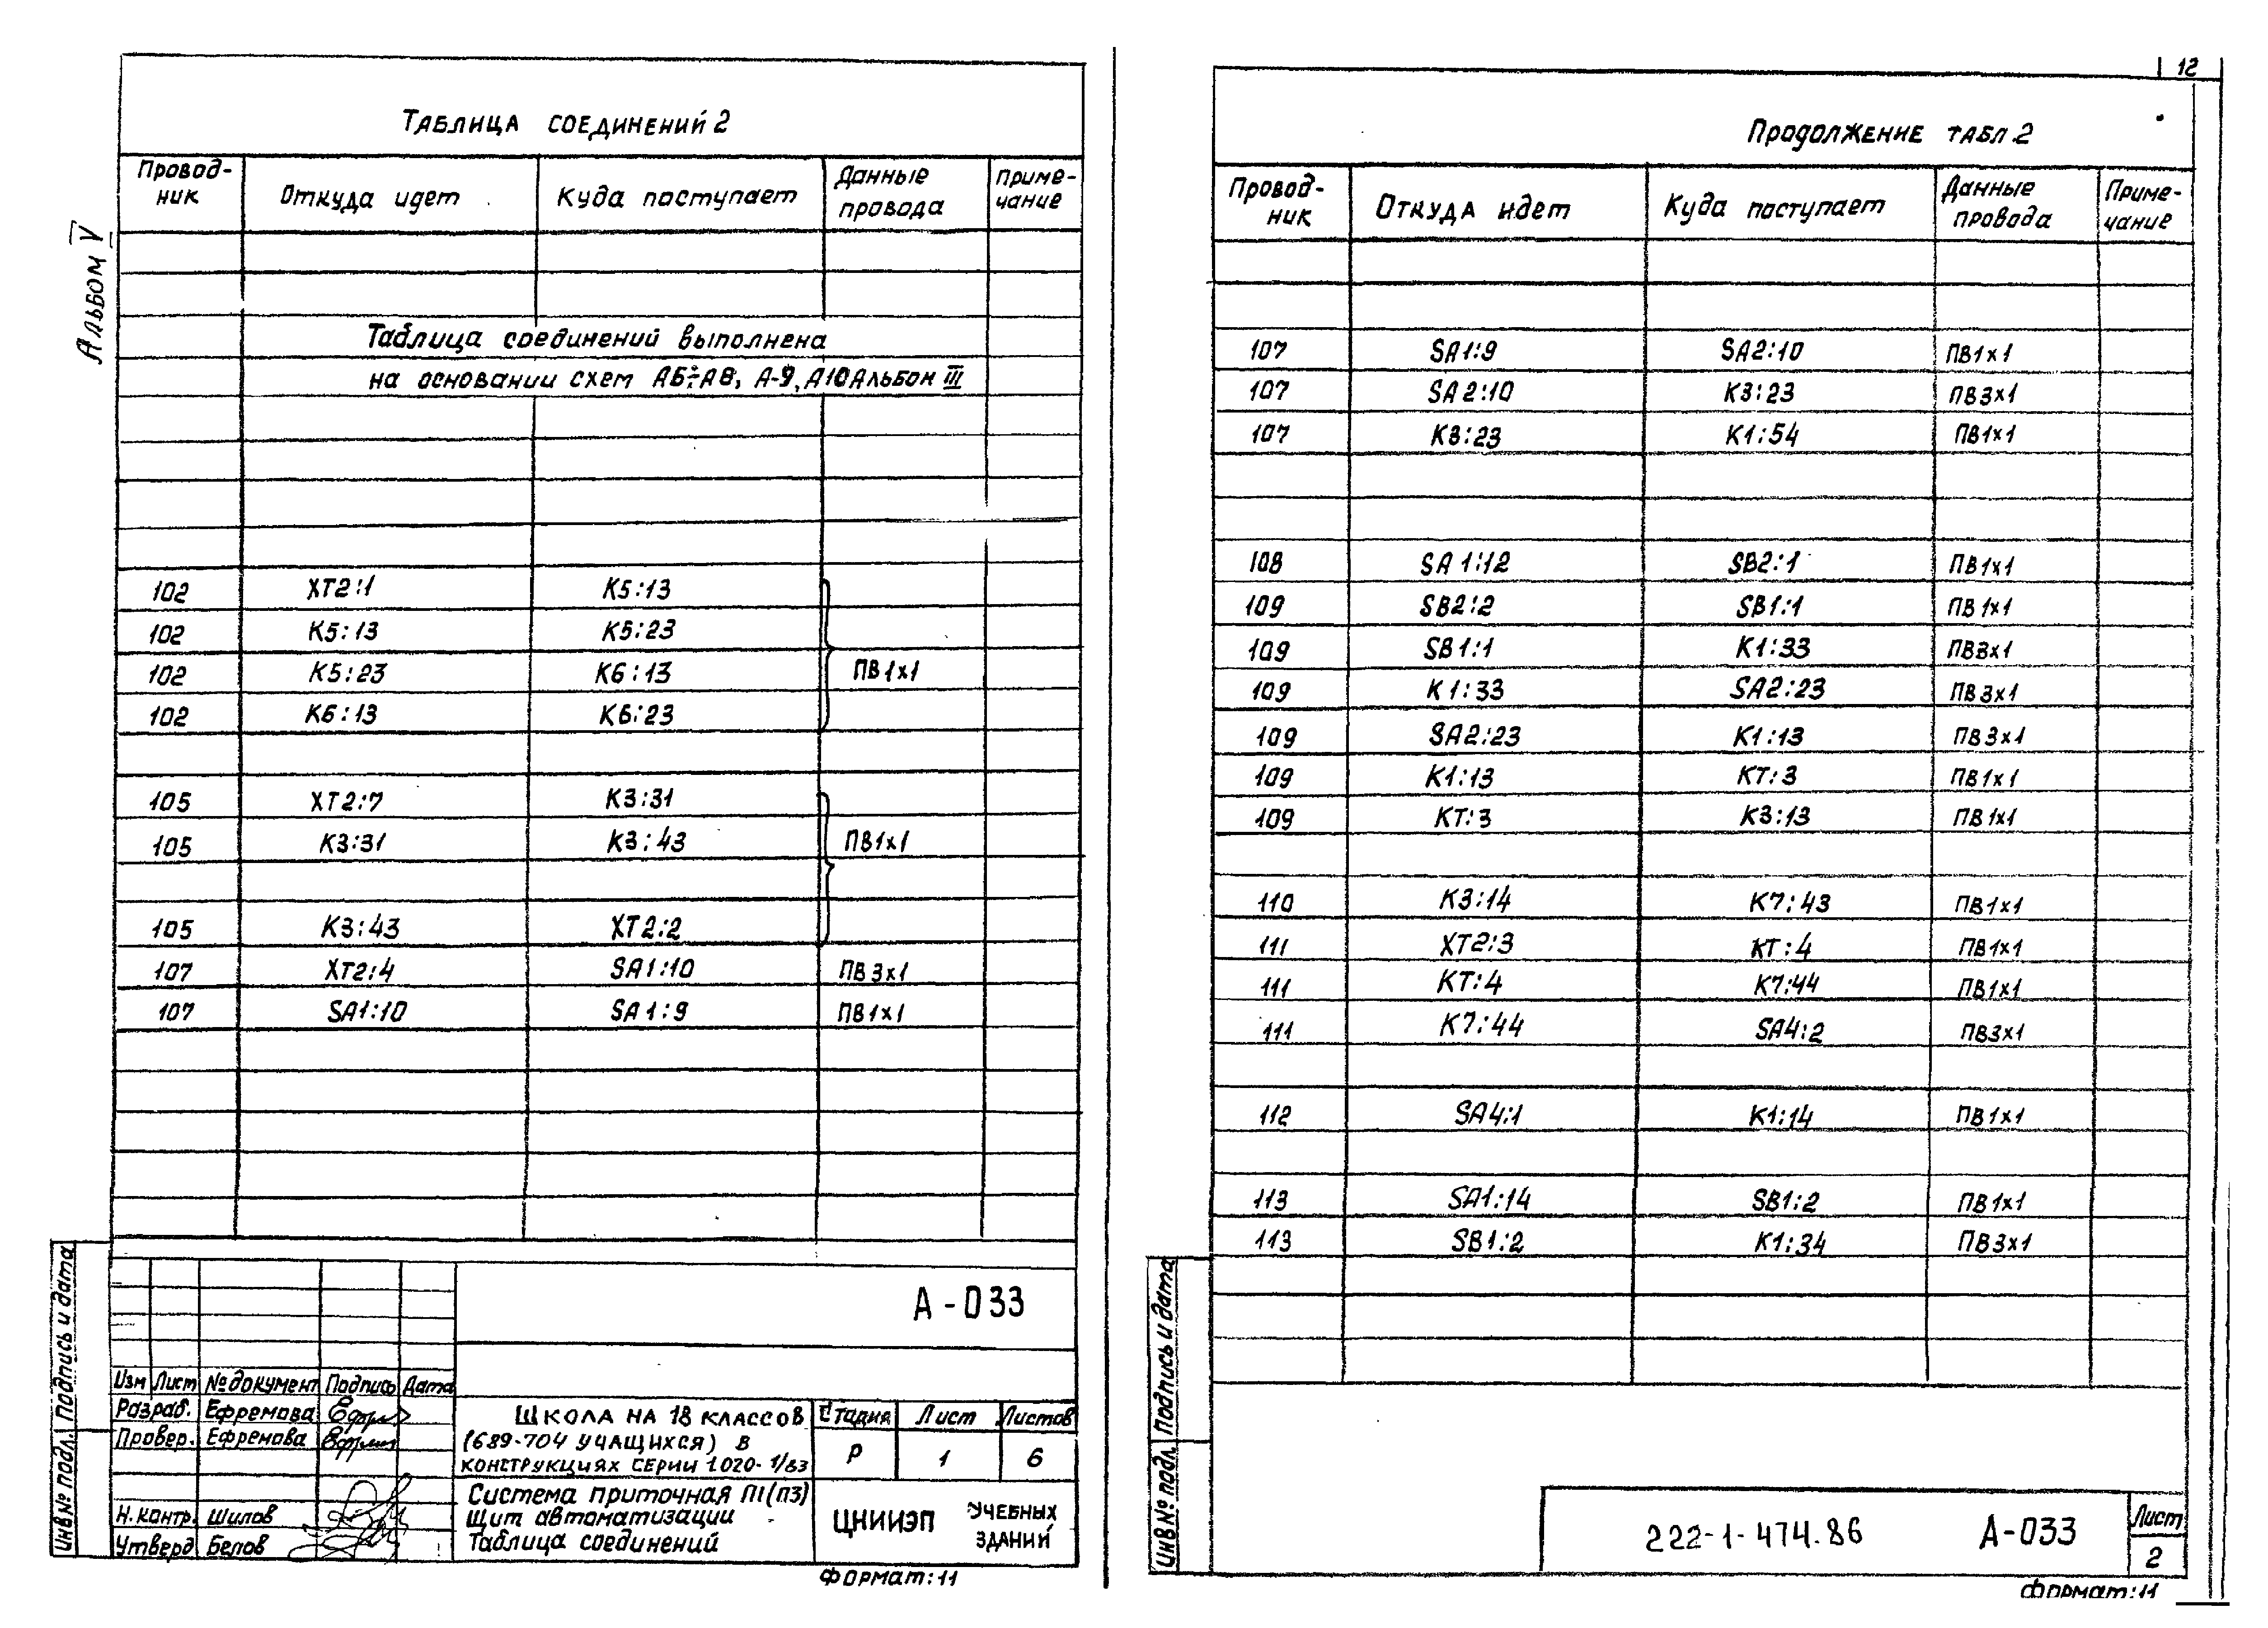 Альбом V
Таблица соединений 2
Провод-ник Откуда идет Куда поступает Данные провода Приме-чание
Таблица соединений выполнена
на основании схем А6÷А8, А-9, А10 Альбом III
102 XT2:1 K5:13
102 K5:13 K5:23
102 K5:23 K6:13 ПВ1х1
102 K6:13 K6:23
105 XT2:7 K3:31
105 K3:31 K3:43 ПВ1х1
105 K3:43 XT2:2
107 XT2:4 SA1:10 ПВ3х1
107 SA1:10 SA1:9 ПВ1х1
А-033
Изм Лист №документ Подпись Дата
Разраб. Ефремова
Провер. Ефремова
Н.контр. Шилов
Утверд Белов
Школа на 18 классов
(689-704 учащихся) в
конструкциях серии 1.020-1/83
Стадия Лист Листов
Р 1 6
Система приточная П1(П3)
Щит автоматизации
Таблица соединений
ЦНИИЭП учебных
зданий
Формат:11
Инв№ подл. Подпись и дата
12
Продолжение табл 2
Провод-ник Откуда идет Куда поступает Данные провода Приме-чание
107 SA1:9 SA2:10 ПВ1х1
107 SA2:10 K3:23 ПВ3х1
107 K3:23 K1:54 ПВ1х1
108 SA1:12 SB2:1 ПВ1х1
109 SB2:2 SB1:1 ПВ1х1
109 SB1:1 K1:33 ПВ3х1
109 K1:33 SA2:23 ПВ3х1
109 SA2:23 K1:13 ПВ3х1
109 K1:13 KT:3 ПВ1х1
109 KT:3 K3:13 ПВ1х1
110 K3:14 K7:43 ПВ1х1
111 XT2:3 KT:4 ПВ1х1
111 KT:4 K7:44 ПВ1х1
111 K7:44 SA4:2 ПВ3х1
112 SA4:1 K1:14 ПВ1х1
113 SA1:14 SB1:2 ПВ1х1
113 SB1:2 K1:34 ПВ3х1
Инв№ подл. Подпись и дата
222-1-474.86 А-033
Лист
2
Формат:11